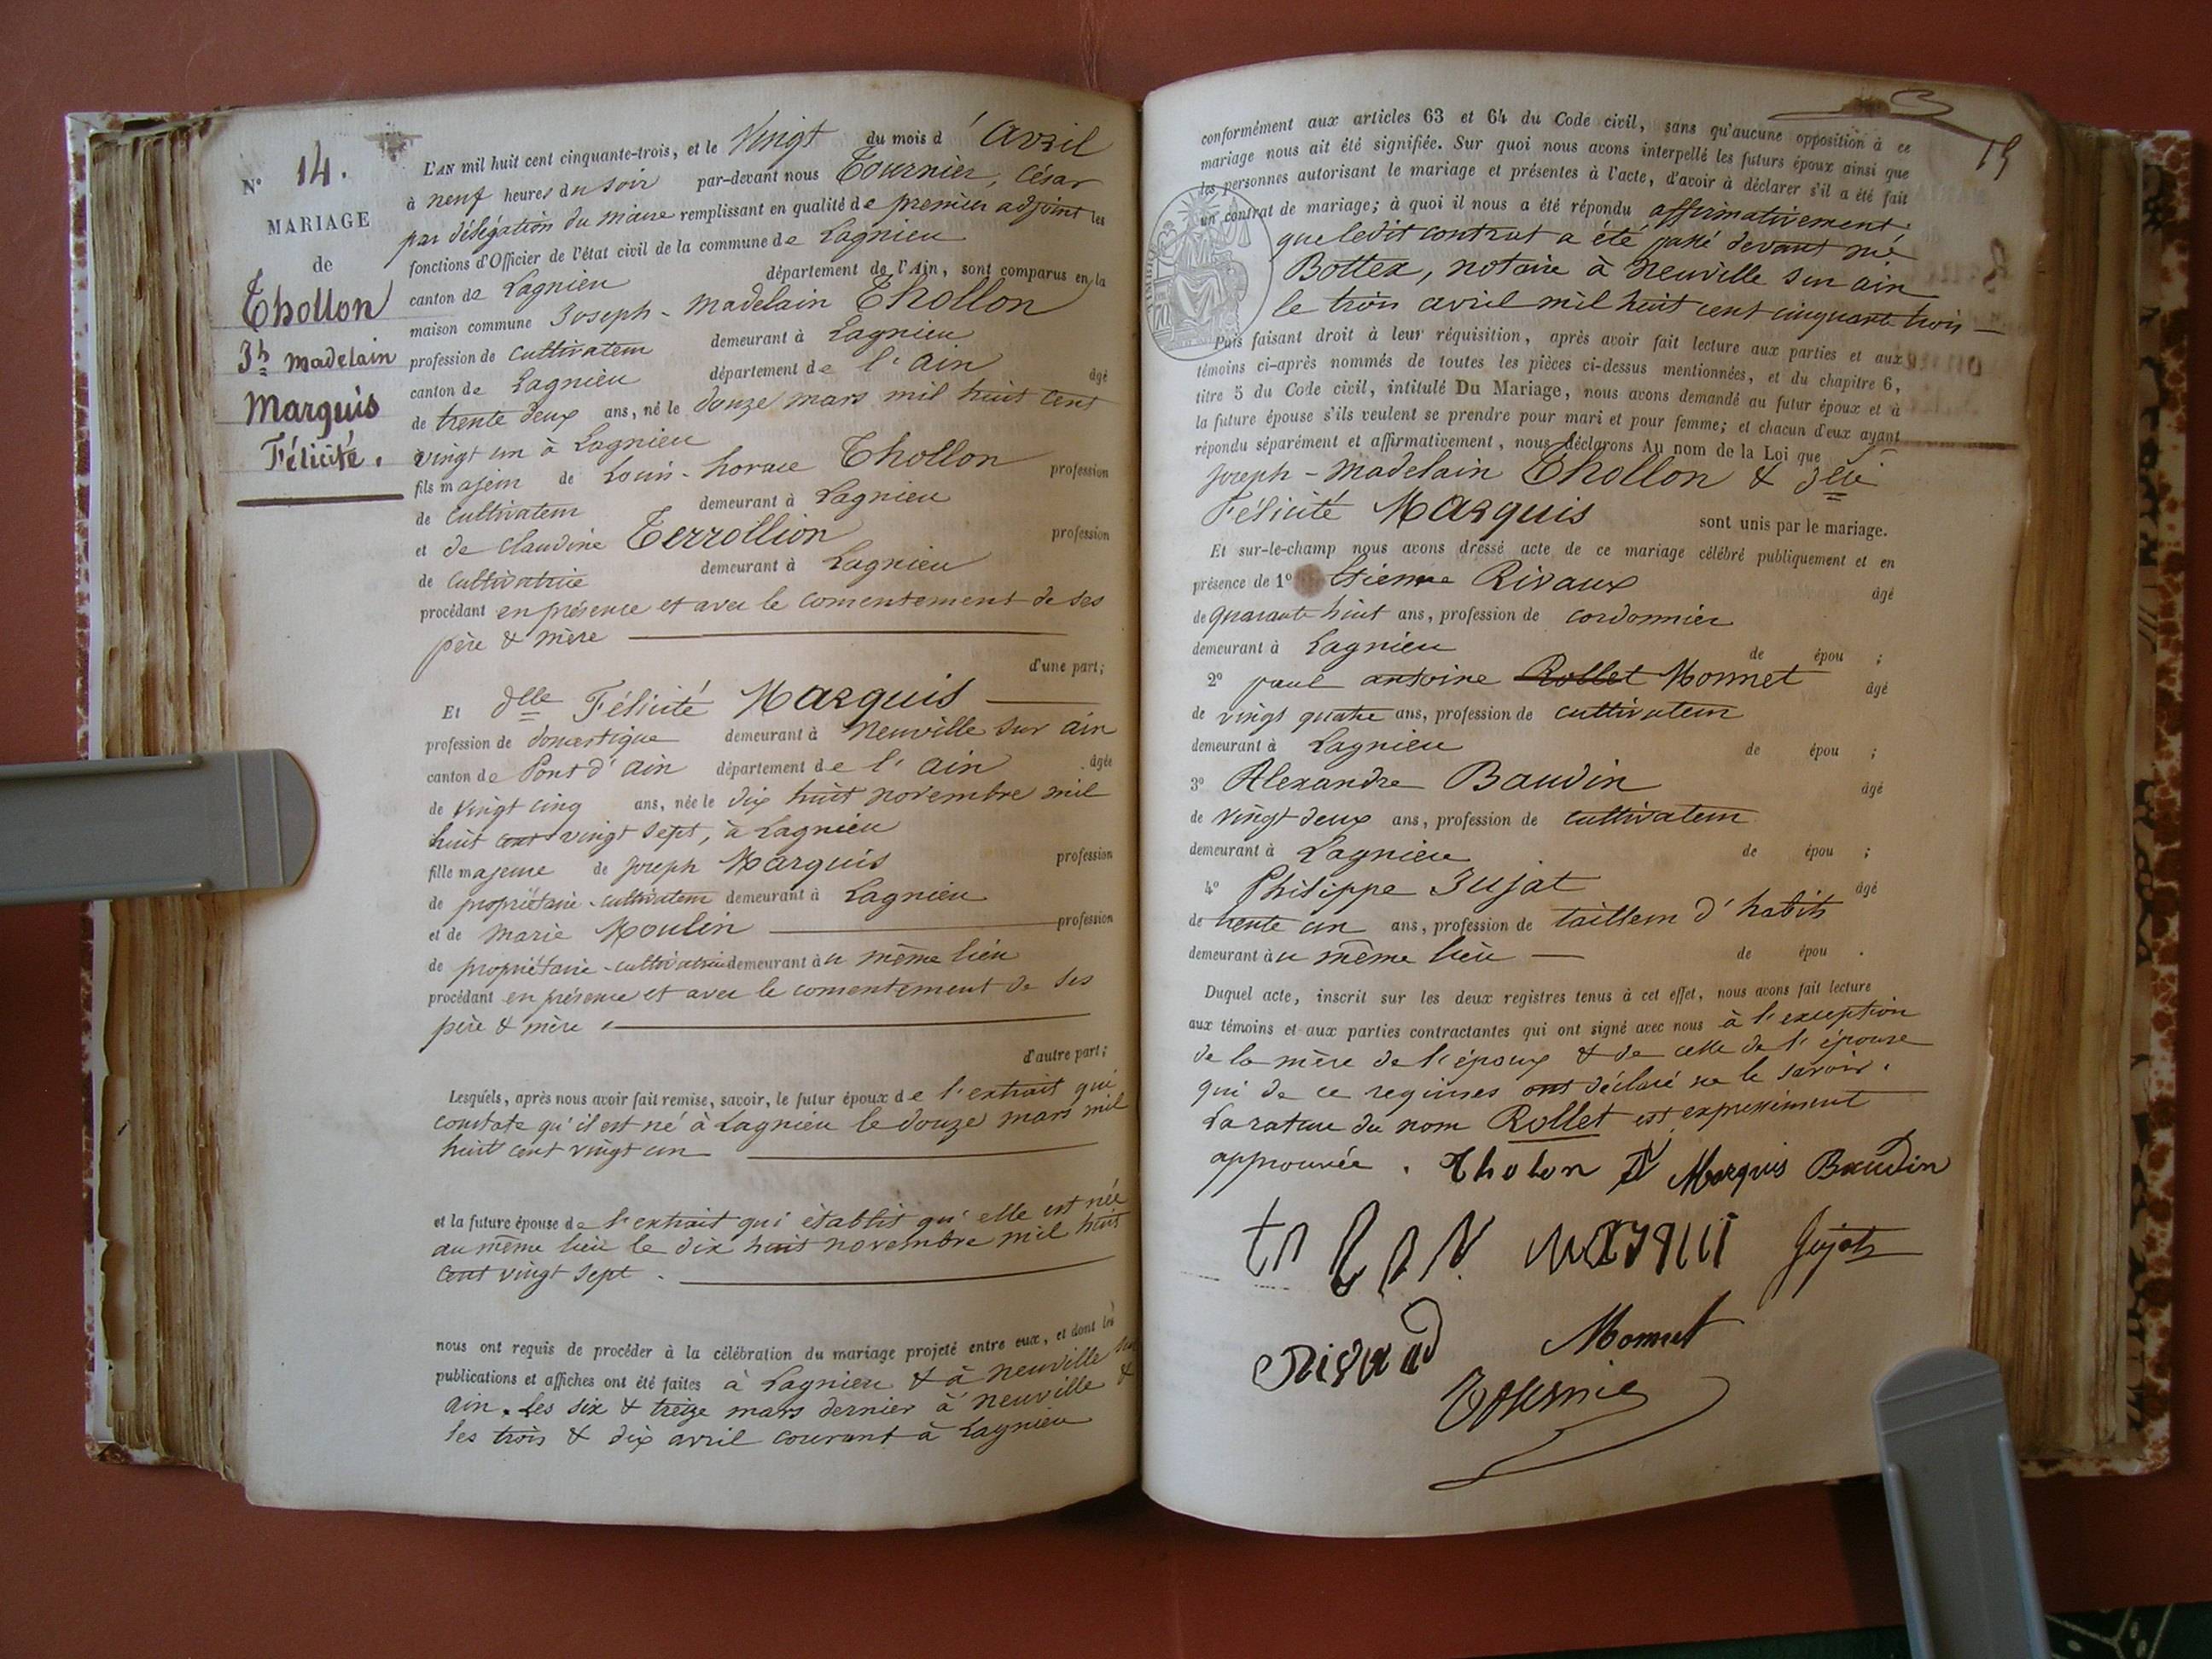 N° 14.
MARIAGE
de
Thollon
Jh Madelain
Marquis
Félicité.
L'AN mil huit cent cinquante-trois, et le Vingt du mois d'avril
à neuf heures du soir par-devant nous Tournier, César
par délégation du maire remplissant en qualité de premier adjoint les
fonctions d'Officier de l'état civil de la commune de Lagnieu
canton de Lagnieu département de l'Ain, sont comparus en la
maison commune Joseph-Madelain Thollon
profession de cultivateur demeurant à Lagnieu
canton de Lagnieu département de l'ain âgé
de trente deux ans, né le douze mars mil huit cent
vingt un à Lagnieu
fils majeur de Louis-horace Thollon profession
de cultivateur demeurant à Lagnieu
et de Claudine Terrollion profession
de cultivatrice demeurant à Lagnieu
procédant en présence et avec le consentement de ses
père & mère
d'une part;
Et dlle Félicité Marquis
profession de domestique demeurant à Neuville sur ain
canton de Pont d'ain département de l'ain âgée
de vingt cinq ans, née le dix huit novembre mil
huit cent vingt sept, à Lagnieu
fille majeure de Joseph Marquis profession
de propriétaire-cultivateur demeurant à Lagnieu
et de Marie Moulin profession
de propriétaire-cultivatrice demeurant au même lieu
procédant en présence et avec le consentement de ses
père & mère
d'autre part;
Lesquels, après nous avoir fait remise, savoir, le futur époux de l'extrait qui
constate qu'il est né à Lagnieu le douze mars mil
huit cent vingt un
et la future épouse de l'extrait qui établit qu'elle est née
au même lieu le dix huit novembre mil huit
cent vingt sept.
nous ont requis de procéder à la célébration du mariage projeté entre eux, et dont les
publications et affiches ont été faites à Lagnieu & à Neuville sur
ain. les six & treize mars dernier à Neuville &
les trois & dix avril courant à Lagnieu
15
conformément aux articles 63 et 64 du Code civil, sans qu'aucune opposition à ce
mariage nous ait été signifiée. Sur quoi nous avons interpellé les futurs époux ainsi que
les personnes autorisant le mariage et présentes à l'acte, d'avoir à déclarer s'il a été fait
un contrat de mariage; à quoi il nous a été répondu affirmativement.
que ledit contrat a été passé devant me
Bottex, notaire à Neuville sur ain
le trois avril mil huit cent cinquante trois
Puis faisant droit à leur réquisition, après avoir fait lecture aux parties et aux
témoins ci-après nommés de toutes les pièces ci-dessus mentionnées, et du chapitre 6,
titre 5 du Code civil, intitulé Du Mariage, nous avons demandé au futur époux et à
la future épouse s'ils veulent se prendre pour mari et pour femme; et chacun d'eux ayant
répondu séparément et affirmativement, nous déclarons Au nom de la Loi que
Joseph-Madelain Thollon & dlle
Félicité Marquis sont unis par le mariage.
Et sur-le-champ nous avons dressé acte de ce mariage célébré publiquement et en
présence de 1° Etienne Rivaux âgé
de quarante huit ans, profession de cordonnier
demeurant à Lagnieu de épou ;
2° paul antoine Rollet Monnet âgé
de vingt quatre ans, profession de cultivateur
demeurant à Lagnieu de épou ;
3° Alexandre Baudin âgé
de vingt deux ans, profession de cultivateur
demeurant à Lagnieu de épou ;
4° Philippe Jujat âgé
de trente un ans, profession de tailleur d'habits
demeurant au même lieu de épou .
Duquel acte, inscrit sur les deux registres tenus à cet effet, nous avons fait lecture
aux témoins et aux parties contractantes qui ont signé avec nous à l'exception
de la mère de l'époux & de celle de l'épouse
qui de ce requises ont déclaré ne le savoir.
La rature du nom Rollet est expressément
approuvée. Tholon F Marquis Baudin
marqui Jujat
Monnet
Tournier